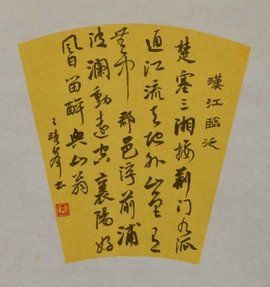 漢江臨泛
楚塞三湘接荆门九派
通江流天地外山色有
無中郡邑浮前浦
波瀾動遠空襄陽好
風日留醉與山翁
王晴峰书